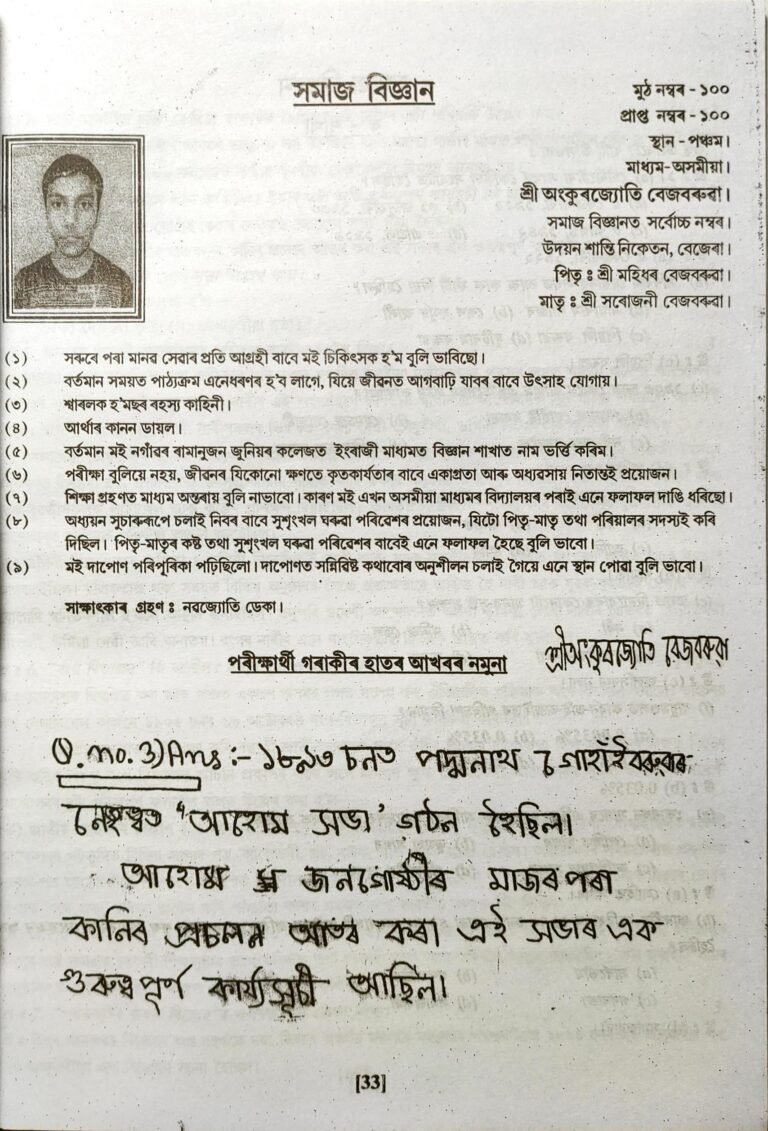 সমাজ বিজ্ঞান
মুঠ নম্বৰ - ১০০
প্ৰাপ্ত নম্বৰ - ১০০
স্থান - পঞ্চম।
মাধ্যম-অসমীয়া।
শ্ৰী অংকুৰজ্যোতি বেজবৰুৱা।
সমাজ বিজ্ঞানত সৰ্বোচ্চ নম্বৰ।
উদয়ন শান্তি নিকেতন, বেজেৰা।
পিতৃ ঃ শ্ৰী মহিধৰ বেজবৰুৱা।
মাতৃ ঃ শ্ৰী সৰোজনী বেজবৰুৱা।
(১) সৰুৰে পৰা মানৱ সেৱাৰ প্ৰতি আগ্ৰহী বাবে মই চিকিৎসক হ'ম বুলি ভাবিছো।
(২) বৰ্তমান সময়ত পাঠ্যক্ৰম এনেধৰণৰ হ'ব লাগে, যিয়ে জীৱনত আগবাঢ়ি যাবৰ বাবে উৎসাহ যোগায়।
(৩) শ্বাৰলক হ'মছৰ ৰহস্য কাহিনী।
(৪) আৰ্থাৰ কানন ডায়ল।
(৫) বৰ্তমান মই নগাঁৱৰ ৰামানুজন জুনিয়ৰ কলেজত ইংৰাজী মাধ্যমত বিজ্ঞান শাখাত নাম ভৰ্ত্তি কৰিম।
(৬) পৰীক্ষা বুলিয়ে নহয়, জীৱনৰ যিকোনো ক্ষণতে কৃতকাৰ্যতাৰ বাবে একাগ্ৰতা আৰু অধ্যৱসায় নিতান্তই প্ৰয়োজন।
(৭) শিক্ষা গ্ৰহণত মাধ্যম অন্তৰায় বুলি নাভাবো। কাৰণ মই এখন অসমীয়া মাধ্যমৰ বিদ্যালয়ৰ পৰাই এনে ফলাফল দাঙি ধৰিছো।
(৮) অধ্যয়ন সুচাৰুৰূপে চলাই নিবৰ বাবে সুশৃংখল ঘৰুৱা পৰিৱেশৰ প্ৰয়োজন, যিটো পিতৃ-মাতৃ তথা পৰিয়ালৰ সদস্যই কৰি
দিছিল। পিতৃ-মাতৃৰ কষ্ট তথা সুশৃংখল ঘৰুৱা পৰিৱেশৰ বাবেই এনে ফলাফল হৈছে বুলি ভাবো।
(৯) মই দাপোণ পৰিপূৰিকা পঢ়িছিলো। দাপোণত সন্নিবিষ্ট কথাবোৰ অনুশীলন চলাই গৈয়ে এনে স্থান পোৱা বুলি ভাবো।
সাক্ষাৎকাৰ গ্ৰহণ ঃ নৱজ্যোতি ডেকা।
শ্ৰীঅংকুৰজ্যোতি বেজবৰুৱা
পৰীক্ষাৰ্থী গৰাকীৰ হাতৰ আখৰৰ নমুনা
Q. no. 3) Ans :- ১৮৯৩ চনত পদ্মনাথ গোহাঁইবৰুৱাৰ
নেতৃত্বত 'আহোম সভা' গঠন হৈছিল।
আহোম জনগোষ্ঠীৰ মাজৰ পৰা
কানিৰ প্ৰচলন আতৰ কৰা এই সভাৰ এক
গুৰুত্বপূৰ্ণ কাৰ্য্যসূচী আছিল।
[33]